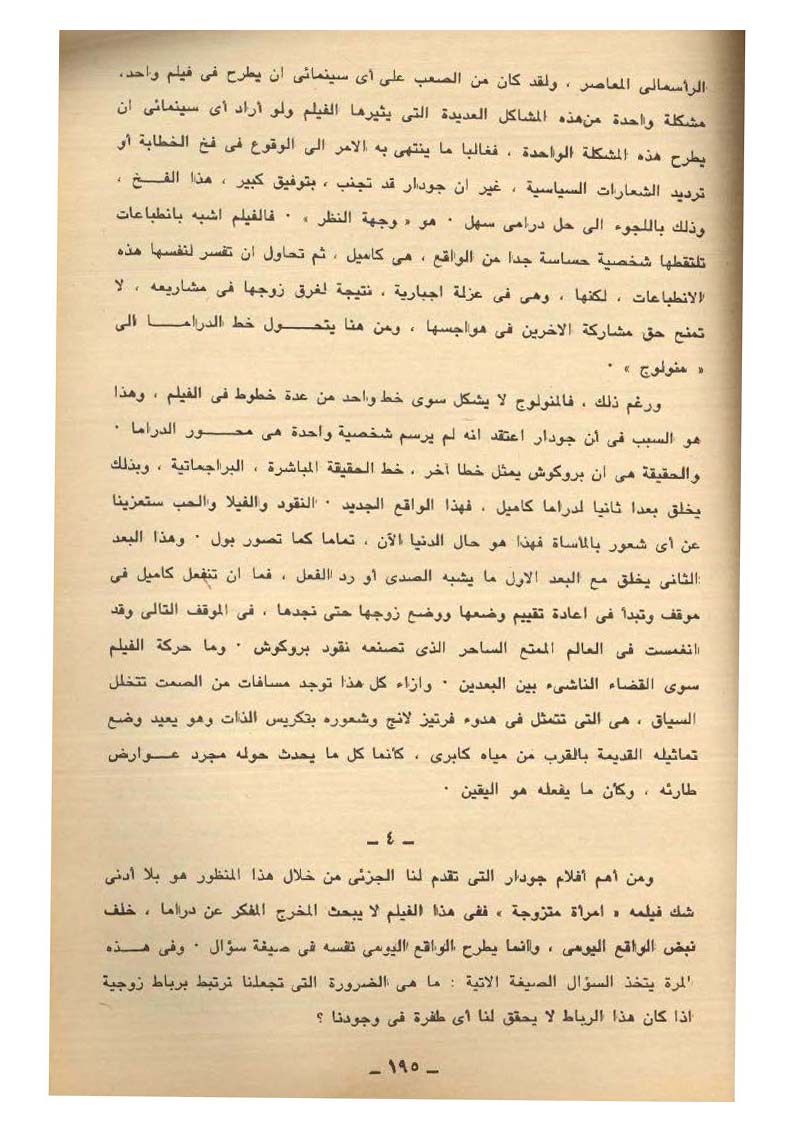 الرأسمالى المعاصر ، ولقد كان من الصعب على أى سينمائى ان يطرح فى فيلم واحد،
مشكلة واحدة من هذه المشاكل العديدة التى يثيرها الفيلم ولو أراد أى سينمائى ان
يطرح هذه المشكلة الواحدة ، فغالبا ما ينتهى به الامر الى الوقوع فى فخ الخطابة أو
ترديد الشعارات السياسية ، غير ان جودار قد تجنب ، بتوفيق كبير ، هذا الفـــخ ،
وذلك باللجوء الى حل درامى سهل ٠ هو « وجهة النظر » ٠ فالفيلم اشبه بانطباعات
تلتقطها شخصية حساسة جدا من الواقع ، هى كاميل ، ثم تحاول ان تفسر لنفسها هذه
الانطباعات ، لكنها ، وهى فى عزلة اجبارية ، نتيجة لغرق زوجها فى مشاريعه ، لا
تمنح حق مشاركة الاخرين فى هواجسها ، ومن هنا يتحـــــول خط الدرامـــا الى
« منولوج » ٠
ورغم ذلك ، فالمنولوج لا يشكل سوى خط واحد من عدة خطوط فى الفيلم ، وهذا
هو السبب فى أن جودار اعتقد انه لم يرسم شخصية واحدة هى محـــور الدراما ٠
والحقيقة هى ان بروكوش يمثل خطا آخر ، خط الحقيقة المباشرة ، البراجماتية ، وبذلك
يخلق بعدا ثانيا لدراما كاميل ، فهذا الواقع الجديد ٠ النقود والفيلا والحب ستعزينا
عن أى شعور بالمأساة فهذا هو حال الدنيا الآن ، تماما كما تصور بول ٠ وهذا البعد
الثانى يخلق مع البعد الاول ما يشبه الصدى أو رد الفعل ، فما ان تنفعل كاميل فى
موقف وتبدأ فى اعادة تقييم وضعها ووضع زوجها حتى نجدها ، فى الموقف التالى وقد
انغمست فى العالم الممتع الساحر الذى تصنعه نقود بروكوش ٠ وما حركة الفيلم
سوى القضاء الناشىء بين البعدين ٠ وازاء كل هذا توجد مسافات من الصمت تتخلل
السياق ، هى التى تتمثل فى هدوء فرتيز لانج وشعوره بتكريس الذات وهو يعيد وضع
تماثيله القديمة بالقرب من مياه كابرى ، كأنما كل ما يحدث حوله مجرد عـــوارض
طارئه ، وكأن ما يفعله هو اليقين ٠
ـ ٤ ـ
ومن أهم أفلام جودار التى تقدم لنا الجزئى من خلال هذا المنظور هو بلا أدنى
شك فيلمه « امرأة متزوجة » ففى هذا الفيلم لا يبحث المخرج المفكر عن دراما ، خلف
نبض الواقع اليومى ، وانما يطرح الواقع اليومى نفسه فى صيغة سؤال ٠ وفى هـــذه
المرة يتخذ السؤال الصيغة الاتية : ما هى الضرورة التى تجعلنا نرتبط برباط زوجية
اذا كان هذا الرباط لا يحقق لنا أى طفرة فى وجودنا ؟
ـ ١٩٥ ـ